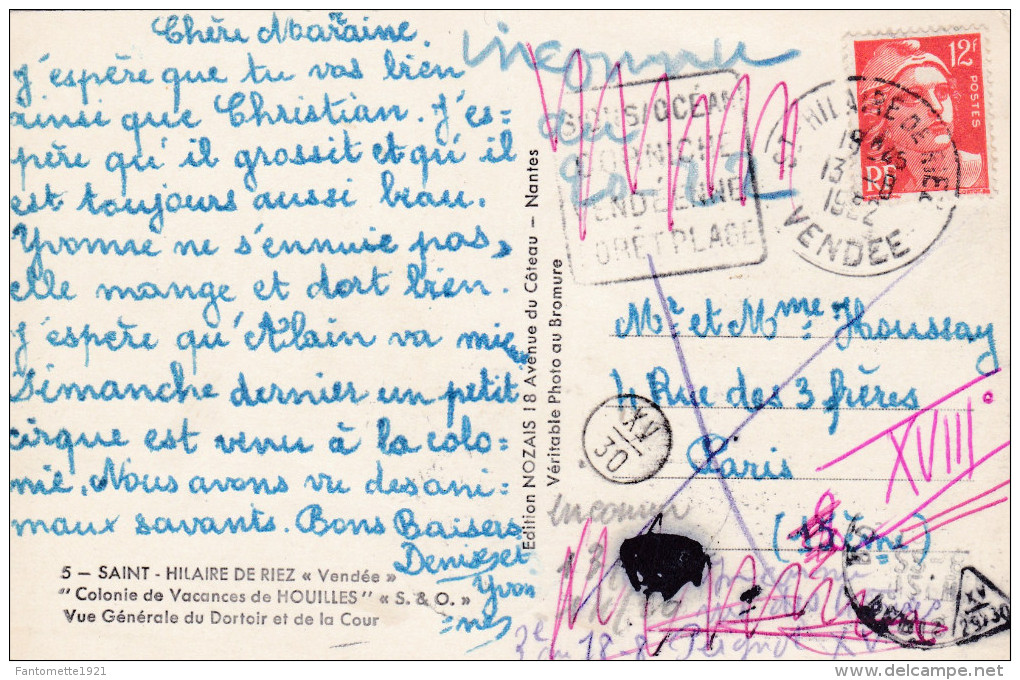 Chère Marraine.
J'espère que tu vas bien
ainsi que Christian. J'es=
père qu'il grossit et qu'il
est toujours aussi beau.
Yvonne ne s'ennuie pas,
elle mange et dort bien.
J'espère qu'Alain va mieux
Dimanche dernier un petit
cirque est venu à la colo=
nie. Nous avons vu des ani=
maux savants. Bons Baisers
Denise et
Yvon
=ne
5 – SAINT - HILAIRE DE RIEZ « Vendée »
"Colonie de Vacances de HOUILLES" « S. & O. »
Vue Générale du Dortoir et de la Cour
Edition NOZAIS 18 Avenue du Côteau – Nantes
Véritable Photo au Bromure
inconnu
au
CORNICHE
VENDÉENNE
FORÊT PLAGE
ST HILAIRE DE RIEZ
18 H45
13
1952
VENDÉE
12F
POSTES
RF
Mr et Mme Houssay
4 Rue des 3 frères
Paris
(15ème)
XVIII
XV
30
inconnu
XV
29/30
3e au 18-8
Fantomette1921
www.delcampe.net